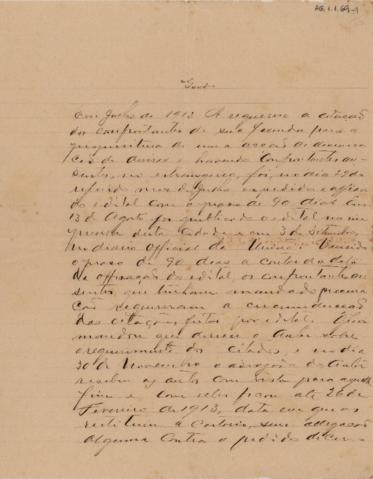 AG.1.1.69-1
Em Julho de 1912 A requereu a citação
dos confrontantes de sua fazenda para a
de uma acção de demarca
ção de e havendo confrontantes au-
sentes, no estrangeiro, foi, no dia 22 de
referido mez de Julho expedido e affixa
do edital com o praso de 90 dias. Em
13 de Agosto foi publicado o edital na im
prensa desta cidade e em 3 de Setembro,
no diario Official da União. Vencido
o praso de 90 dias a contar da data
da affixação do edital, os confrontantes au
sentes, que tinham mandado procura
ção requereram a circumducção
das citações feitas por edital. O Juiz
mandou que dissesse o Autor sobre
o requerimento dos citados, e no dia
30 de Novembro o advogado do Autor
recebeu os autos com vista para aquelle
fim e com elles ficou até 26 de
Fevereiro de 1913, data em que os
restituiu a Cartorio, sem allegação
alguma contra o pedido de circum-